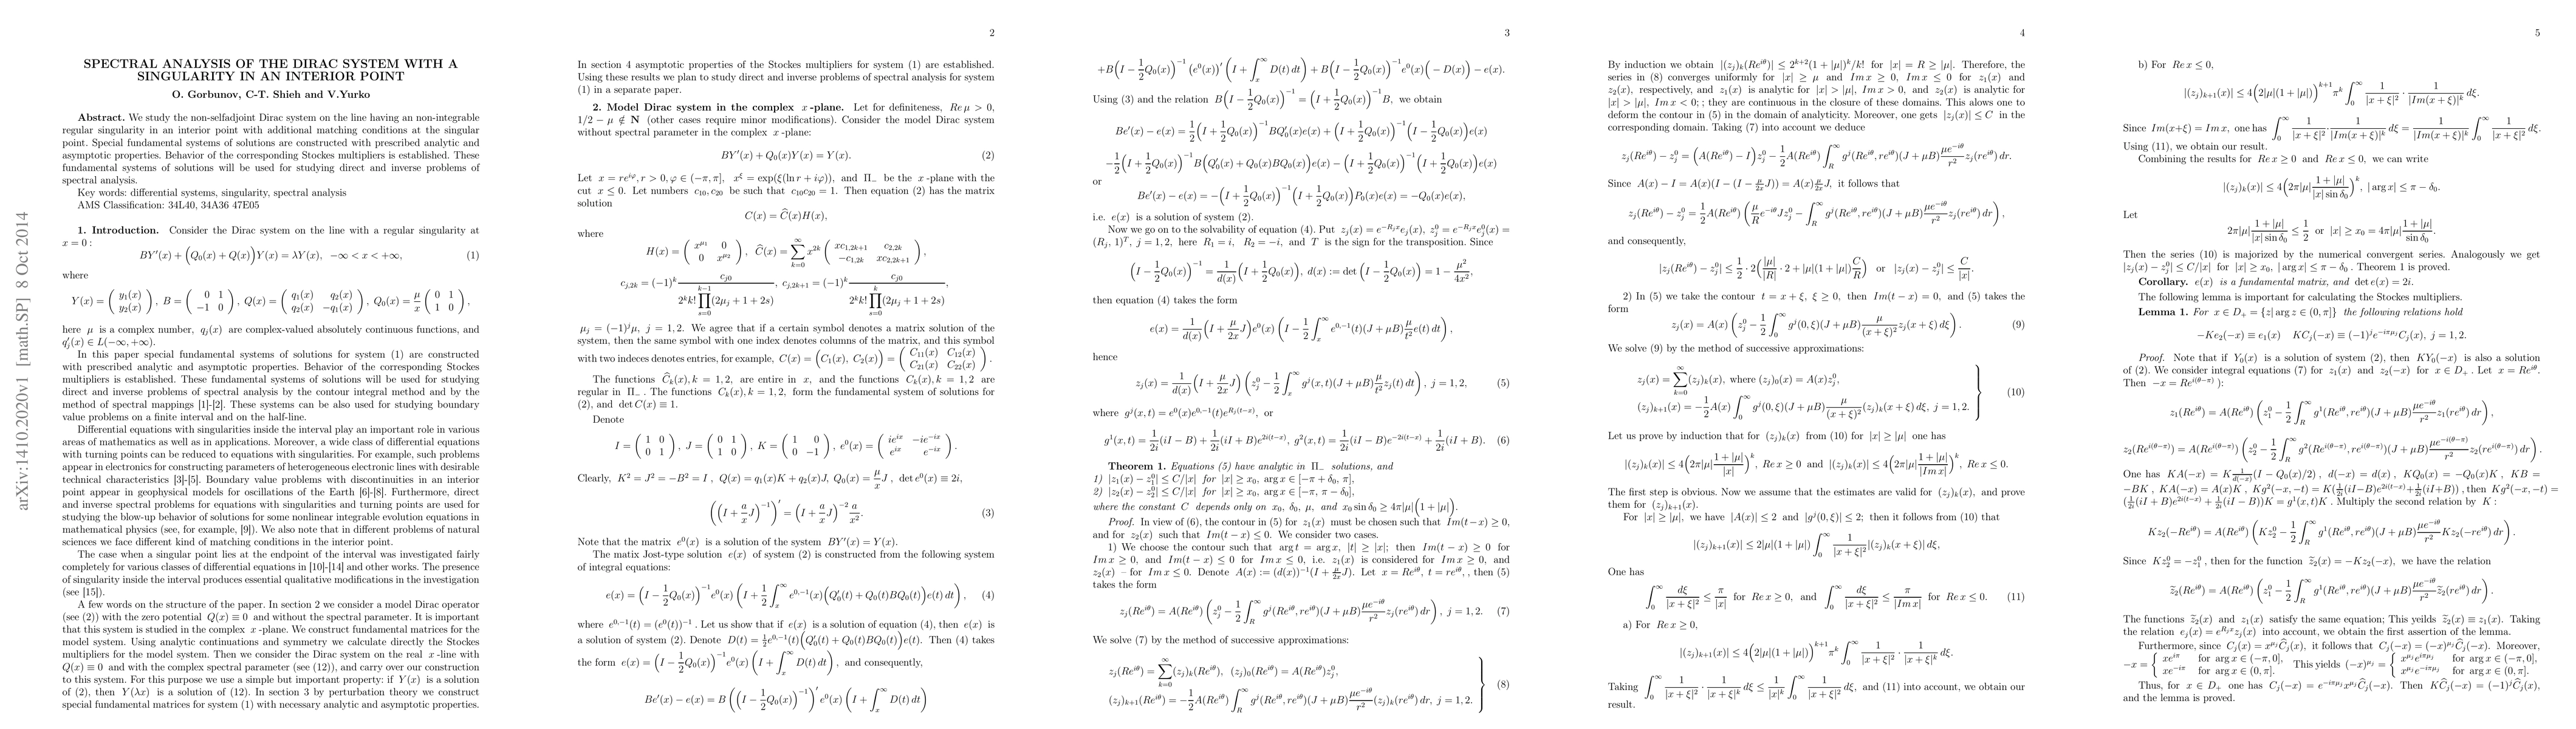 arXiv:1410.2020v1 [math.SP] 8 Oct 2014
SPECTRAL ANALYSIS OF THE DIRAC SYSTEM WITH A
SINGULARITY IN AN INTERIOR POINT
O. Gorbunov, C-T. Shieh and V.Yurko
Abstract. We study the non-selfadjoint Dirac system on the line having an non-integrable
regular singularity in an interior point with additional matching conditions at the singular
point. Special fundamental systems of solutions are constructed with prescribed analytic and
asymptotic properties. Behavior of the corresponding Stockes multipliers is established. These
fundamental systems of solutions will be used for studying direct and inverse problems of
spectral analysis.
Key words: differential systems, singularity, spectral analysis
AMS Classification: 34L40, 34A36 47E05
1. Introduction. Consider the Dirac system on the line with a regular singularity at
x = 0 :
BY′(x) + (Q₀(x) + Q(x))Y(x) = λY(x), −∞ < x < +∞, (1)
where
Y(x) = ( y₁(x) ; y₂(x) ), B = ( 0 1 ; −1 0 ), Q(x) = ( q₁(x) q₂(x) ; q₂(x) −q₁(x) ), Q₀(x) = μ/x ( 0 1 ; 1 0 ),
here μ is a complex number, qⱼ(x) are complex-valued absolutely continuous functions, and
q′ⱼ(x) ∈ L(−∞, +∞).
In this paper special fundamental systems of solutions for system (1) are constructed
with prescribed analytic and asymptotic properties. Behavior of the corresponding Stockes
multipliers is established. These fundamental systems of solutions will be used for studying
direct and inverse problems of spectral analysis by the contour integral method and by the
method of spectral mappings [1]-[2]. These systems can be also used for studying boundary
value problems on a finite interval and on the half-line.
Differential equations with singularities inside the interval play an important role in various
areas of mathematics as well as in applications. Moreover, a wide class of differential equations
with turning points can be reduced to equations with singularities. For example, such problems
appear in electronics for constructing parameters of heterogeneous electronic lines with desirable
technical characteristics [3]-[5]. Boundary value problems with discontinuities in an interior
point appear in geophysical models for oscillations of the Earth [6]-[8]. Furthermore, direct
and inverse problems for equations with singularities and turning points are used for
studying the blow-up behavior of solutions for some nonlinear integrable evolution equations in
mathematical physics (see, for example, [9]). We also note that in different problems of natural
sciences we face different kind of matching conditions in the interior point.
The case when a singular point lies at the endpoint of the interval was investigated fairly
completely for various classes of differential equations in [10]-[14] and other works. The presence
of singularity inside the interval produces essential qualitative modifications in the investigation
(see [15]).
A few words on the structure of the paper. In section 2 we consider a model Dirac operator
(see (2)) with the zero potential Q(x) ≡ 0 and without the spectral parameter. It is important
that this system is studied in the complex x -plane. We construct fundamental matrices for the
model system. Using analytic continuations and symmetry we calculate directly the Stockes
multipliers for the model system. Then we consider the Dirac system on the real x -line with
Q(x) ≡ 0 and with the complex spectral parameter (see (12)), and carry over our construction
to this system. For this purpose we use a simple but important property: if Y(x) is a solution
of (2), then Y(λx) is a solution of (12). In section 3 by perturbation theory we construct
special fundamental matrices for system (1) with necessary analytic and asymptotic properties.
2
In section 4 asymptotic properties of the Stockes multipliers for system (1) are established.
Using these results we plan to study direct and inverse problems of spectral analysis for system
(1) in a separate paper.
2. Model Dirac system in the complex x -plane. Let for definiteness, Re μ > 0,
1/2 − μ ∉ N (other cases require minor modifications). Consider the model Dirac system
without spectral parameter in the complex x -plane:
BY′(x) + Q₀(x)Y(x) = Y(x). (2)
Let x = re^{iφ}, r > 0, φ ∈ (−π, π], x^ξ = exp(ξ(ln r + iφ)), and Π₋ be the x -plane with the
cut x ≤ 0. Let numbers c₁₀, c₂₀ be such that c₁₀c₂₀ = 1. Then equation (2) has the matrix
solution
C(x) = Ĉ(x)H(x),
where
H(x) = ( x^{μ₁} 0 ; 0 x^{μ₂} ), Ĉ(x) = ∑_{k=0}^{∞} x^{2k} ( xc_{1,2k+1} c_{2,2k} ; −c_{1,2k} xc_{2,2k+1} ),
c_{j,2k} = (−1)^k c_{j0} / (2^k k! ∏_{s=0}^{k−1}(2μⱼ + 1 + 2s)), c_{j,2k+1} = (−1)^k c_{j0} / (2^k k! ∏_{s=0}^{k}(2μⱼ + 1 + 2s)),
μⱼ = (−1)^j μ, j = 1, 2. We agree that if a certain symbol denotes a matrix solution of the
system, then the same symbol with one index denotes columns of the matrix, and this symbol
with two indeces denotes entries, for example, C(x) = (C₁(x), C₂(x)) = ( C₁₁(x) C₁₂(x) ; C₂₁(x) C₂₂(x) ).
The functions Ĉₖ(x), k = 1, 2, are entire in x, and the functions Cₖ(x), k = 1, 2 are
regular in Π₋. The functions Cₖ(x), k = 1, 2, form the fundamental system of solutions for
(2), and det C(x) ≡ 1.
Denote
I = ( 1 0 ; 0 1 ), J = ( 0 1 ; 1 0 ), K = ( 1 0 ; 0 −1 ), e⁰(x) = ( ie^{ix} −ie^{−ix} ; e^{ix} e^{−ix} ).
Clearly, K² = J² = −B² = I , Q(x) = q₁(x)K + q₂(x)J, Q₀(x) = μ/x J , det e⁰(x) ≡ 2i,
((I + a/x J)^{−1})′ = (I + a/x J)^{−2} a/x². (3)
Note that the matrix e⁰(x) is a solution of the system BY′(x) = Y(x).
The matix Jost-type solution e(x) of system (2) is constructed from the following system
of integral equations:
e(x) = (I − ½Q₀(x))^{−1} e⁰(x) (I + ½ ∫_x^∞ e^{0,−1}(x)(Q′₀(t) + Q₀(t)BQ₀(t))e(t) dt), (4)
where e^{0,−1}(t) = (e⁰(t))^{−1} . Let us show that if e(x) is a solution of equation (4), then e(x) is
a solution of system (2). Denote D(t) = ½e^{0,−1}(t)(Q′₀(t) + Q₀(t)BQ₀(t))e(t). Then (4) takes
the form e(x) = (I − ½Q₀(x))^{−1} e⁰(x) (I + ∫_x^∞ D(t) dt), and consequently,
Be′(x) − e(x) = B((I − ½Q₀(x))^{−1})′ e⁰(x) (I + ∫_x^∞ D(t) dt)
3
+B(I − ½Q₀(x))^{−1} (e⁰(x))′ (I + ∫_x^∞ D(t) dt) + B(I − ½Q₀(x))^{−1} e⁰(x)(− D(x)) − e(x).
Using (3) and the relation B(I − ½Q₀(x))^{−1} = (I + ½Q₀(x))^{−1} B, we obtain
Be′(x) − e(x) = ½(I + ½Q₀(x))^{−1} BQ′₀(x)e(x) + (I + ½Q₀(x))^{−1}(I − ½Q₀(x))e(x)
−½(I + ½Q₀(x))^{−1} B(Q′₀(x) + Q₀(x)BQ₀(x))e(x) − (I + ½Q₀(x))^{−1}(I + ½Q₀(x))e(x)
or
Be′(x) − e(x) = −(I + ½Q₀(x))^{−1}(I + ½Q₀(x))P₀(x)e(x) = −Q₀(x)e(x),
i.e. e(x) is a solution of system (2).
Now we go on to the solvability of equation (4). Put zⱼ(x) = e^{−Rⱼx}eⱼ(x), zⱼ⁰ = e^{−Rⱼx}eⱼ⁰(x) =
(Rⱼ, 1)^T, j = 1, 2, here R₁ = i, R₂ = −i, and T is the sign for the transposition. Since
(I − ½Q₀(x))^{−1} = 1/d(x) (I + ½Q₀(x)), d(x) := det (I − ½Q₀(x)) = 1 − μ²/4x²,
then equation (4) takes the form
e(x) = 1/d(x) (I + μ/2x J) e⁰(x) (I − ½ ∫_x^∞ e^{0,−1}(t)(J + μB) μ/t² e(t) dt),
hence
zⱼ(x) = 1/d(x) (I + μ/2x J) (zⱼ⁰ − ½ ∫_x^∞ g^j(x, t)(J + μB) μ/t² zⱼ(t) dt), j = 1, 2, (5)
where g^j(x, t) = e⁰(x)e^{0,−1}(t)e^{Rⱼ(t−x)}, or
g¹(x, t) = 1/2i (iI − B) + 1/2i (iI + B)e^{2i(t−x)}, g²(x, t) = 1/2i (iI − B)e^{−2i(t−x)} + 1/2i (iI + B). (6)
Theorem 1. Equations (5) have analytic in Π₋ solutions, and
1) |z₁(x) − z₁⁰| ≤ C/|x| for |x| ≥ x₀, arg x ∈ [−π + δ₀, π],
2) |z₂(x) − z₂⁰| ≤ C/|x| for |x| ≥ x₀, arg x ∈ [−π, π − δ₀],
where the constant C depends only on x₀, δ₀, μ, and x₀ sin δ₀ ≥ 4π|μ|(1 + |μ|).
Proof. In view of (6), the contour in (5) for z₁(x) must be chosen such that Im(t−x) ≥ 0,
and for z₂(x) such that Im(t − x) ≤ 0. We consider two cases.
1) We choose the contour such that arg t = arg x, |t| ≥ |x|; then Im(t − x) ≥ 0 for
Im x ≥ 0, and Im(t − x) ≤ 0 for Im x ≤ 0, i.e. z₁(x) is considered for Im x ≥ 0, and
z₂(x) – for Im x ≤ 0. Denote A(x) := (d(x))^{−1}(I + μ/2x J). Let x = Re^{iθ}, t = re^{iθ}, , then (5)
takes the form
zⱼ(Re^{iθ}) = A(Re^{iθ}) (zⱼ⁰ − ½ ∫_R^∞ g^j(Re^{iθ}, re^{iθ})(J + μB) μe^{−iθ}/r² zⱼ(re^{iθ}) dr), j = 1, 2. (7)
We solve (7) by the method of successive approximations:
zⱼ(Re^{iθ}) = ∑_{k=0}^∞ (zⱼ)ₖ(Re^{iθ}), (zⱼ)₀(Re^{iθ}) = A(Re^{iθ})zⱼ⁰,
(zⱼ)ₖ₊₁(Re^{iθ}) = −½A(Re^{iθ}) ∫_R^∞ g^j(Re^{iθ}, re^{iθ})(J + μB) μe^{−iθ}/r² (zⱼ)ₖ(re^{iθ}) dr, j = 1, 2. } (8)
4
By induction we obtain |(zⱼ)ₖ(Re^{iθ})| ≤ 2^{k+2}(1 + |μ|)^k/k! for |x| = R ≥ |μ|. Therefore, the
series in (8) converges uniformly for |x| ≥ μ and Im x ≥ 0, Im x ≤ 0 for z₁(x) and
z₂(x), respectively, and z₁(x) is analytic for |x| > |μ|, Im x > 0, and z₂(x) is analytic for
|x| > |μ|, Im x < 0; ; they are continuous in the closure of these domains. This alows one to
deform the contour in (5) in the domain of analyticity. Moreover, one gets |zⱼ(x)| ≤ C in the
corresponding domain. Taking (7) into account we deduce
zⱼ(Re^{iθ}) − zⱼ⁰ = (A(Re^{iθ}) − I)zⱼ⁰ − ½A(Re^{iθ}) ∫_R^∞ g^j(Re^{iθ}, re^{iθ})(J + μB) μe^{−iθ}/r² zⱼ(re^{iθ}) dr.
Since A(x) − I = A(x)(I − (I − μ/2x J)) = A(x) μ/2x J, it follows that
zⱼ(Re^{iθ}) − zⱼ⁰ = ½A(Re^{iθ}) (μ/R e^{−iθ}Jzⱼ⁰ − ∫_R^∞ g^j(Re^{iθ}, re^{iθ})(J + μB) μe^{−iθ}/r² zⱼ(re^{iθ}) dr),
and consequently,
|zⱼ(Re^{iθ}) − zⱼ⁰| ≤ ½ · 2(|μ|/|R| · 2 + |μ|(1 + |μ|) C/R) or |zⱼ(x) − zⱼ⁰| ≤ C/|x|.
2) In (5) we take the contour t = x + ξ, ξ ≥ 0, then Im(t − x) = 0, and (5) takes the
form
zⱼ(x) = A(x) (zⱼ⁰ − ½ ∫_0^∞ g^j(0, ξ)(J + μB) μ/(x + ξ)² zⱼ(x + ξ) dξ). (9)
We solve (9) by the method of successive approximations:
zⱼ(x) = ∑_{k=0}^∞ (zⱼ)ₖ(x), where (zⱼ)₀(x) = A(x)zⱼ⁰,
(zⱼ)ₖ₊₁(x) = −½A(x) ∫_0^∞ g^j(0, ξ)(J + μB) μ/(x + ξ)² (zⱼ)ₖ(x + ξ) dξ, j = 1, 2. } (10)
Let us prove by induction that for (zⱼ)ₖ(x) from (10) for |x| ≥ |μ| one has
|(zⱼ)ₖ(x)| ≤ 4(2π|μ| (1 + |μ|)/|x|)^k, Re x ≥ 0 and |(zⱼ)ₖ(x)| ≤ 4(2π|μ| (1 + |μ|)/|Im x|)^k, Re x ≤ 0.
The first step is obvious. Now we assume that the estimates are valid for (zⱼ)ₖ(x), and prove
them for (zⱼ)ₖ₊₁(x).
For |x| ≥ |μ|, we have |A(x)| ≤ 2 and |g^j(0, ξ)| ≤ 2; then it follows from (10) that
|(zⱼ)ₖ₊₁(x)| ≤ 2|μ|(1 + |μ|) ∫_0^∞ 1/|x + ξ|² |(zⱼ)ₖ(x + ξ)| dξ,
One has
∫_0^∞ dξ/|x + ξ|² ≤ π/|x| for Re x ≥ 0, and ∫_0^∞ dξ/|x + ξ|² ≤ π/|Im x| for Re x ≤ 0. (11)
a) For Re x ≥ 0,
|(zⱼ)ₖ₊₁(x)| ≤ 4(2|μ|(1 + |μ|))^{k+1} π^k ∫_0^∞ 1/|x + ξ|² · 1/|x + ξ|^k dξ.
Taking ∫_0^∞ 1/|x + ξ|² · 1/|x + ξ|^k dξ ≤ 1/|x|^k ∫_0^∞ 1/|x + ξ|² dξ, and (11) into account, we obtain our
result.
5
b) For Re x ≤ 0,
|(zⱼ)ₖ₊₁(x)| ≤ 4(2|μ|(1 + |μ|))^{k+1} π^k ∫_0^∞ 1/|x + ξ|² · 1/|Im(x + ξ)|^k dξ.
Since Im(x+ξ) = Im x, one has ∫_0^∞ 1/|x + ξ|² · 1/|Im(x + ξ)|^k dξ = 1/|Im(x + ξ)|^k ∫_0^∞ 1/|x + ξ|² dξ.
Using (11), we obtain our result.
Combining the results for Re x ≥ 0 and Re x ≤ 0, we can write
|(zⱼ)ₖ(x)| ≤ 4(2π|μ| (1 + |μ|)/(|x| sin δ₀))^k, | arg x| ≤ π − δ₀.
Let
2π|μ| (1 + |μ|)/(|x| sin δ₀) ≤ ½ or |x| ≥ x₀ = 4π|μ| (1 + |μ|)/sin δ₀.
Then the series (10) is majorized by the numerical convergent series. Analogously we get
|zⱼ(x) − zⱼ⁰| ≤ C/|x| for |x| ≥ x₀, | arg x| ≤ π − δ₀ . Theorem 1 is proved.
Corollary. e(x) is a fundamental matrix, and det e(x) = 2i.
The following lemma is important for calculating the Stockes multipliers.
Lemma 1. For x ∈ D₊ = {z| arg z ∈ (0, π]} the following relations hold
−Ke₂(−x) ≡ e₁(x) KCⱼ(−x) ≡ (−1)^j e^{−iπμⱼ}Cⱼ(x), j = 1, 2.
Proof. Note that if Y₀(x) is a solution of system (2), then KY₀(−x) is also a solution
of (2). We consider integral equations (7) for z₁(x) and z₂(−x) for x ∈ D₊. Let x = Re^{iθ}.
Then −x = Re^{i(θ−π)}):
z₁(Re^{iθ}) = A(Re^{iθ}) (z₁⁰ − ½ ∫_R^∞ g¹(Re^{iθ}, re^{iθ})(J + μB) μe^{−iθ}/r² z₁(re^{iθ}) dr),
z₂(Re^{i(θ−π)}) = A(Re^{i(θ−π)}) (z₂⁰ − ½ ∫_R^∞ g²(Re^{i(θ−π)}, re^{i(θ−π)})(J + μB) μe^{−i(θ−π)}/r² z₂(re^{i(θ−π)}) dr).
One has KA(−x) = K 1/d(−x) (I − Q₀(x)/2) , d(−x) = d(x) , KQ₀(x) = −Q₀(x)K , KB =
−BK , KA(−x) = A(x)K , Kg²(−x, −t) = K(1/2i (iI−B)e^{2i(t−x)} + 1/2i (iI+B)) , then Kg²(−x, −t) =
(1/2i (iI + B)e^{2i(t−x)} + 1/2i (iI − B))K = g¹(x, t)K . Multiply the second relation by K :
Kz₂(−Re^{iθ}) = A(Re^{iθ}) (Kz₂⁰ − ½ ∫_R^∞ g¹(Re^{iθ}, re^{iθ})(J + μB) μe^{−iθ}/r² Kz₂(−re^{iθ}) dr).
Since Kz₂⁰ = −z₁⁰ , then for the function z̃₂(x) = −Kz₂(−x), we have the relation
z̃₂(Re^{iθ}) = A(Re^{iθ}) (z₁⁰ − ½ ∫_R^∞ g¹(Re^{iθ}, re^{iθ})(J + μB) μe^{−iθ}/r² z̃₂(re^{iθ}) dr).
The functions z̃₂(x) and z₁(x) satisfy the same equation; This yeilds z̃₂(x) ≡ z₁(x). Taking
the relation eⱼ(x) = e^{Rⱼx}zⱼ(x) into account, we obtain the first assertion of the lemma.
Furthermore, since Cⱼ(x) = x^{μⱼ}Ĉⱼ(x), it follows that Cⱼ(−x) = (−x)^{μⱼ}Ĉⱼ(−x). Moreover,
−x = { xe^{iπ} for arg x ∈ (−π, 0], ; xe^{−iπ} for arg x ∈ (0, π]. This yields (−x)^{μⱼ} = { x^{μⱼ}e^{iπμⱼ} for arg x ∈ (−π, 0], ; x^{μⱼ}e^{−iπμⱼ} for arg x ∈ (0, π].
Thus, for x ∈ D₊ one has Cⱼ(−x) = e^{−iπμⱼ}x^{μⱼ}Ĉⱼ(−x). Then KĈⱼ(−x) = (−1)^jĈⱼ(x),
and the lemma is proved.